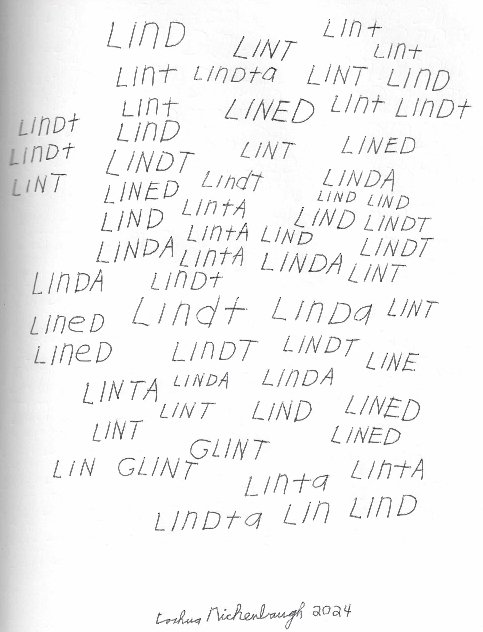 LInD LInt
LINT Lint
LInt LInDta LINT LInD
LInt LINED LInt LInDt
LInDt LInD
LInDt LINDT LINT LINED
LINT LINED LIndT LINDA
LIND LIntA LIND LIND
LIND LINDT
LINDA LIntA LIND LINDT
LIntA LINDA LINT
LInDA LInDt
LIneD LIndt LInDa LINT
LIneD LINDT LINDT LINE
LINTA LINDA LINDA
LINT LIND LINED
LINT GLINT LINED
LIN GLINT LIntA
LInta
LInDta LIn LInD
2024